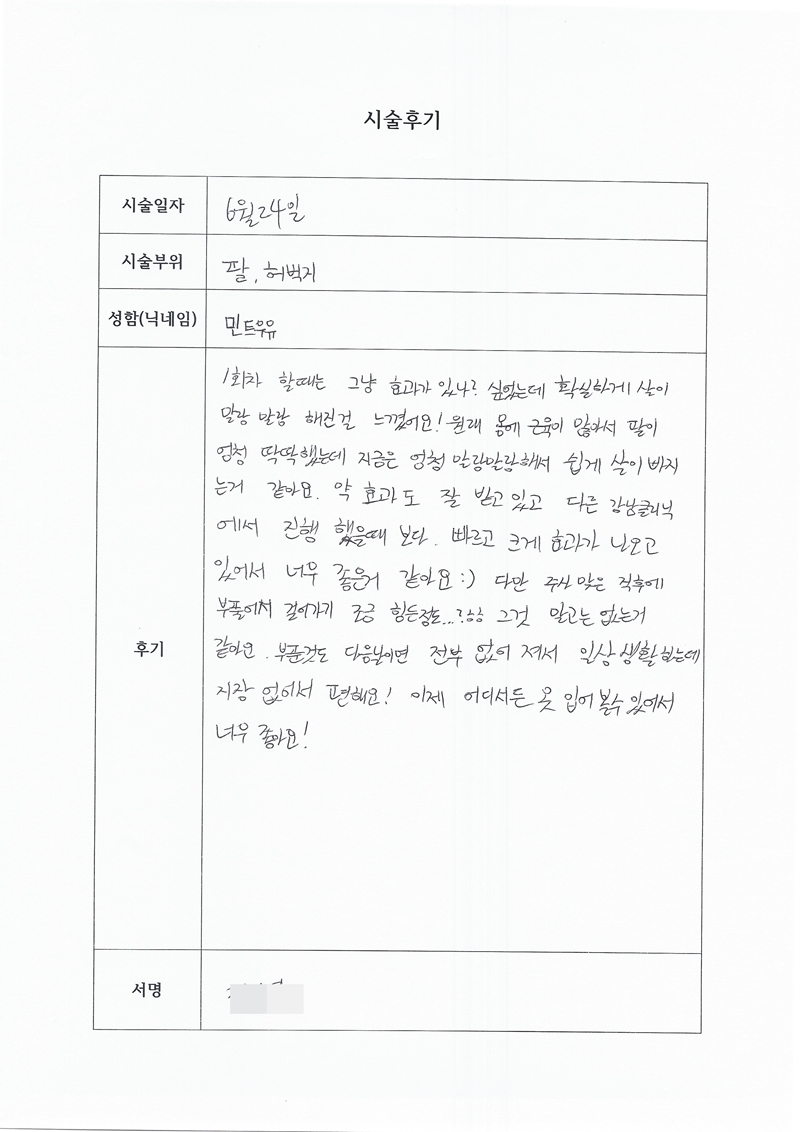 시술후기
시술일자 6월24일
시술부위 팔, 허벅지
성함(닉네임) 민트우유
1회차 할때는 그냥 효과가 있나? 싶었는데 확실하게 살이
말랑 말랑 해진걸 느꼈어요! 원래 몸에 근육이 많아서 팔이
엄청 딱딱했는데 지금은 엄청 말랑말랑해서 쉽게 살이 빠지
는거 같아요. 약 효과도 잘 받고 있고 다른 강남클리닉
에서 진행 했을때 보다. 빠르고 크게 효과가 나오고
있어서 너무 좋은거 같아요 :) 다만 주사 맞은 직후에
부풀어서 걸어가기 조금 힘든정도...? 그것 말고는 없는거
후기
같아요. 부푼것도 다음날이면 전부 없어 져서 일상생활 하는데
지장 없어서 편해요! 이제 어디서든 옷 입어 볼수 있어서
너무 좋아요!
서명